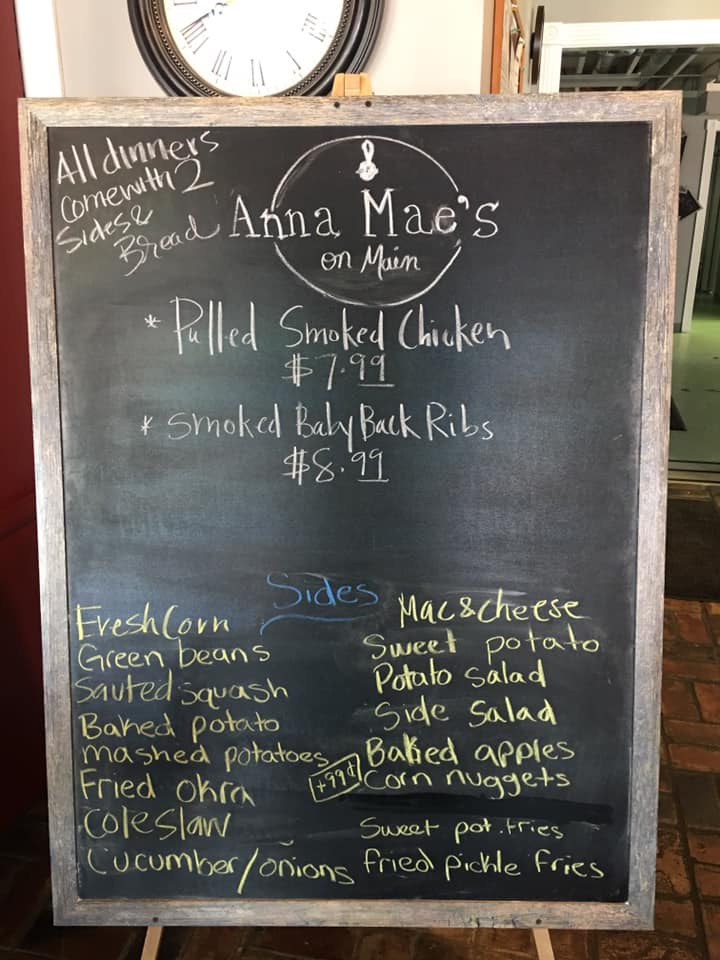 All dinners
come with 2
Sides &
Bread
Anna Mae's
on Main
* Pulled Smoked Chicken
$7.99
* Smoked Baby Back Ribs
$8.99
Sides
Fresh Corn
Green beans
Sauted squash
Baked potato
mashed potatoes
Fried okra
Coleslaw
Cucumber/onions
Mac & cheese
Sweet potato
Potato salad
Side Salad
Baked apples
+99¢ Corn nuggets
Sweet pot. fries
fried pickle fries